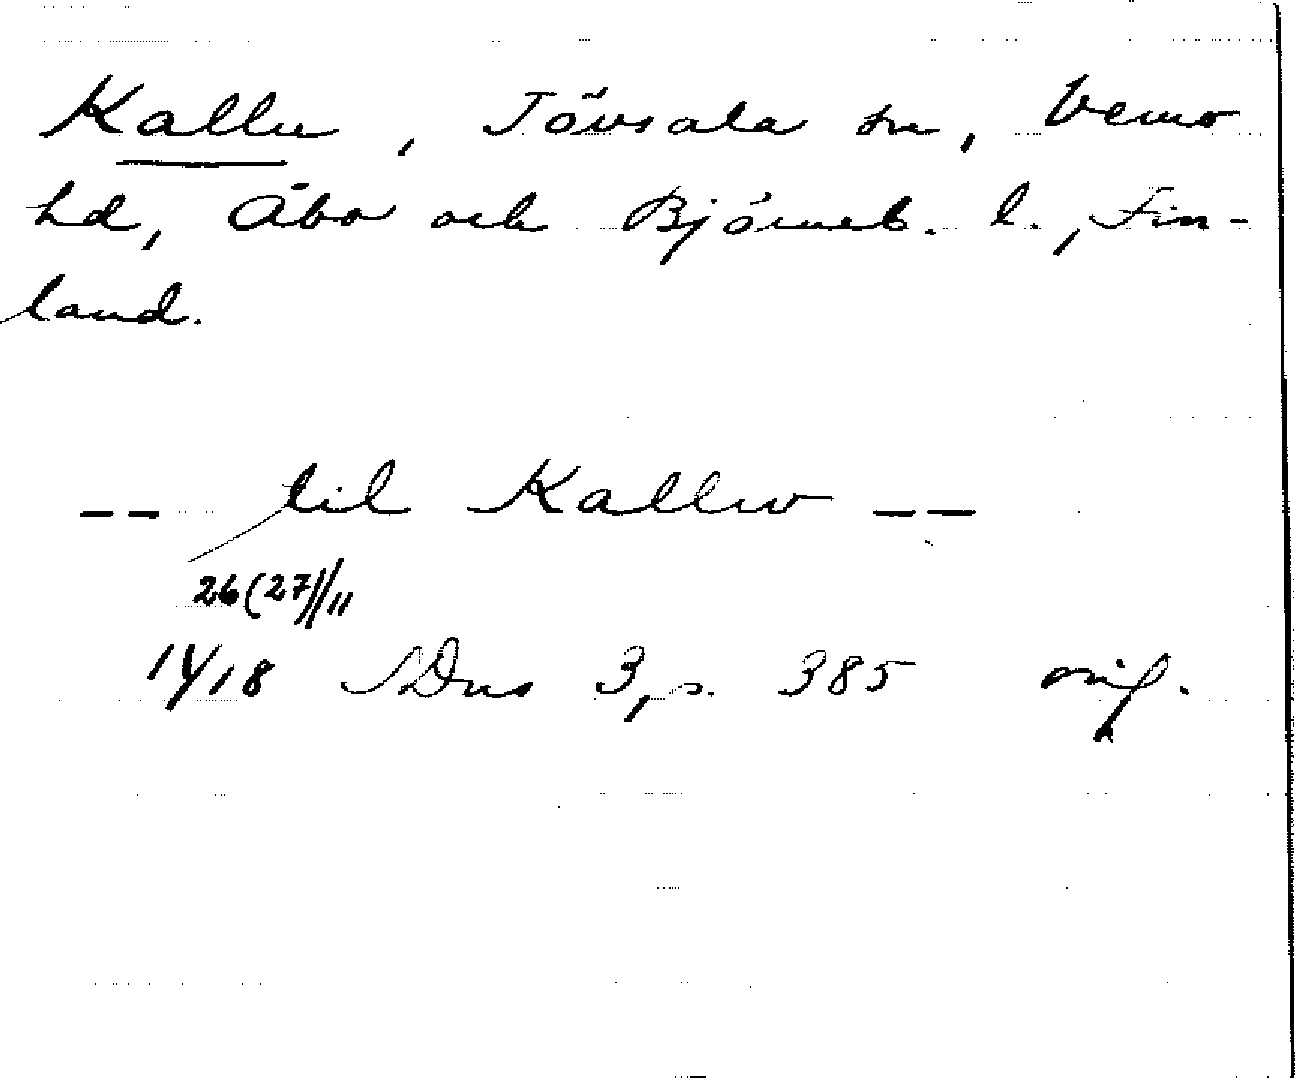 Kallu, Tövsala sn, Vemo
hd, Åbo och Björneb. l., Fin-
land.
-- til Kalluo --
26(27)/11
14/18 SDns 3, s. 385 orig.